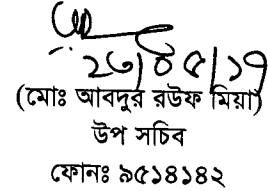 ২৩/০৫/১৭
(মোঃ আবদুর রউফ মিয়া)
উপ সচিব
ফোনঃ ৯৫১৪১৪২